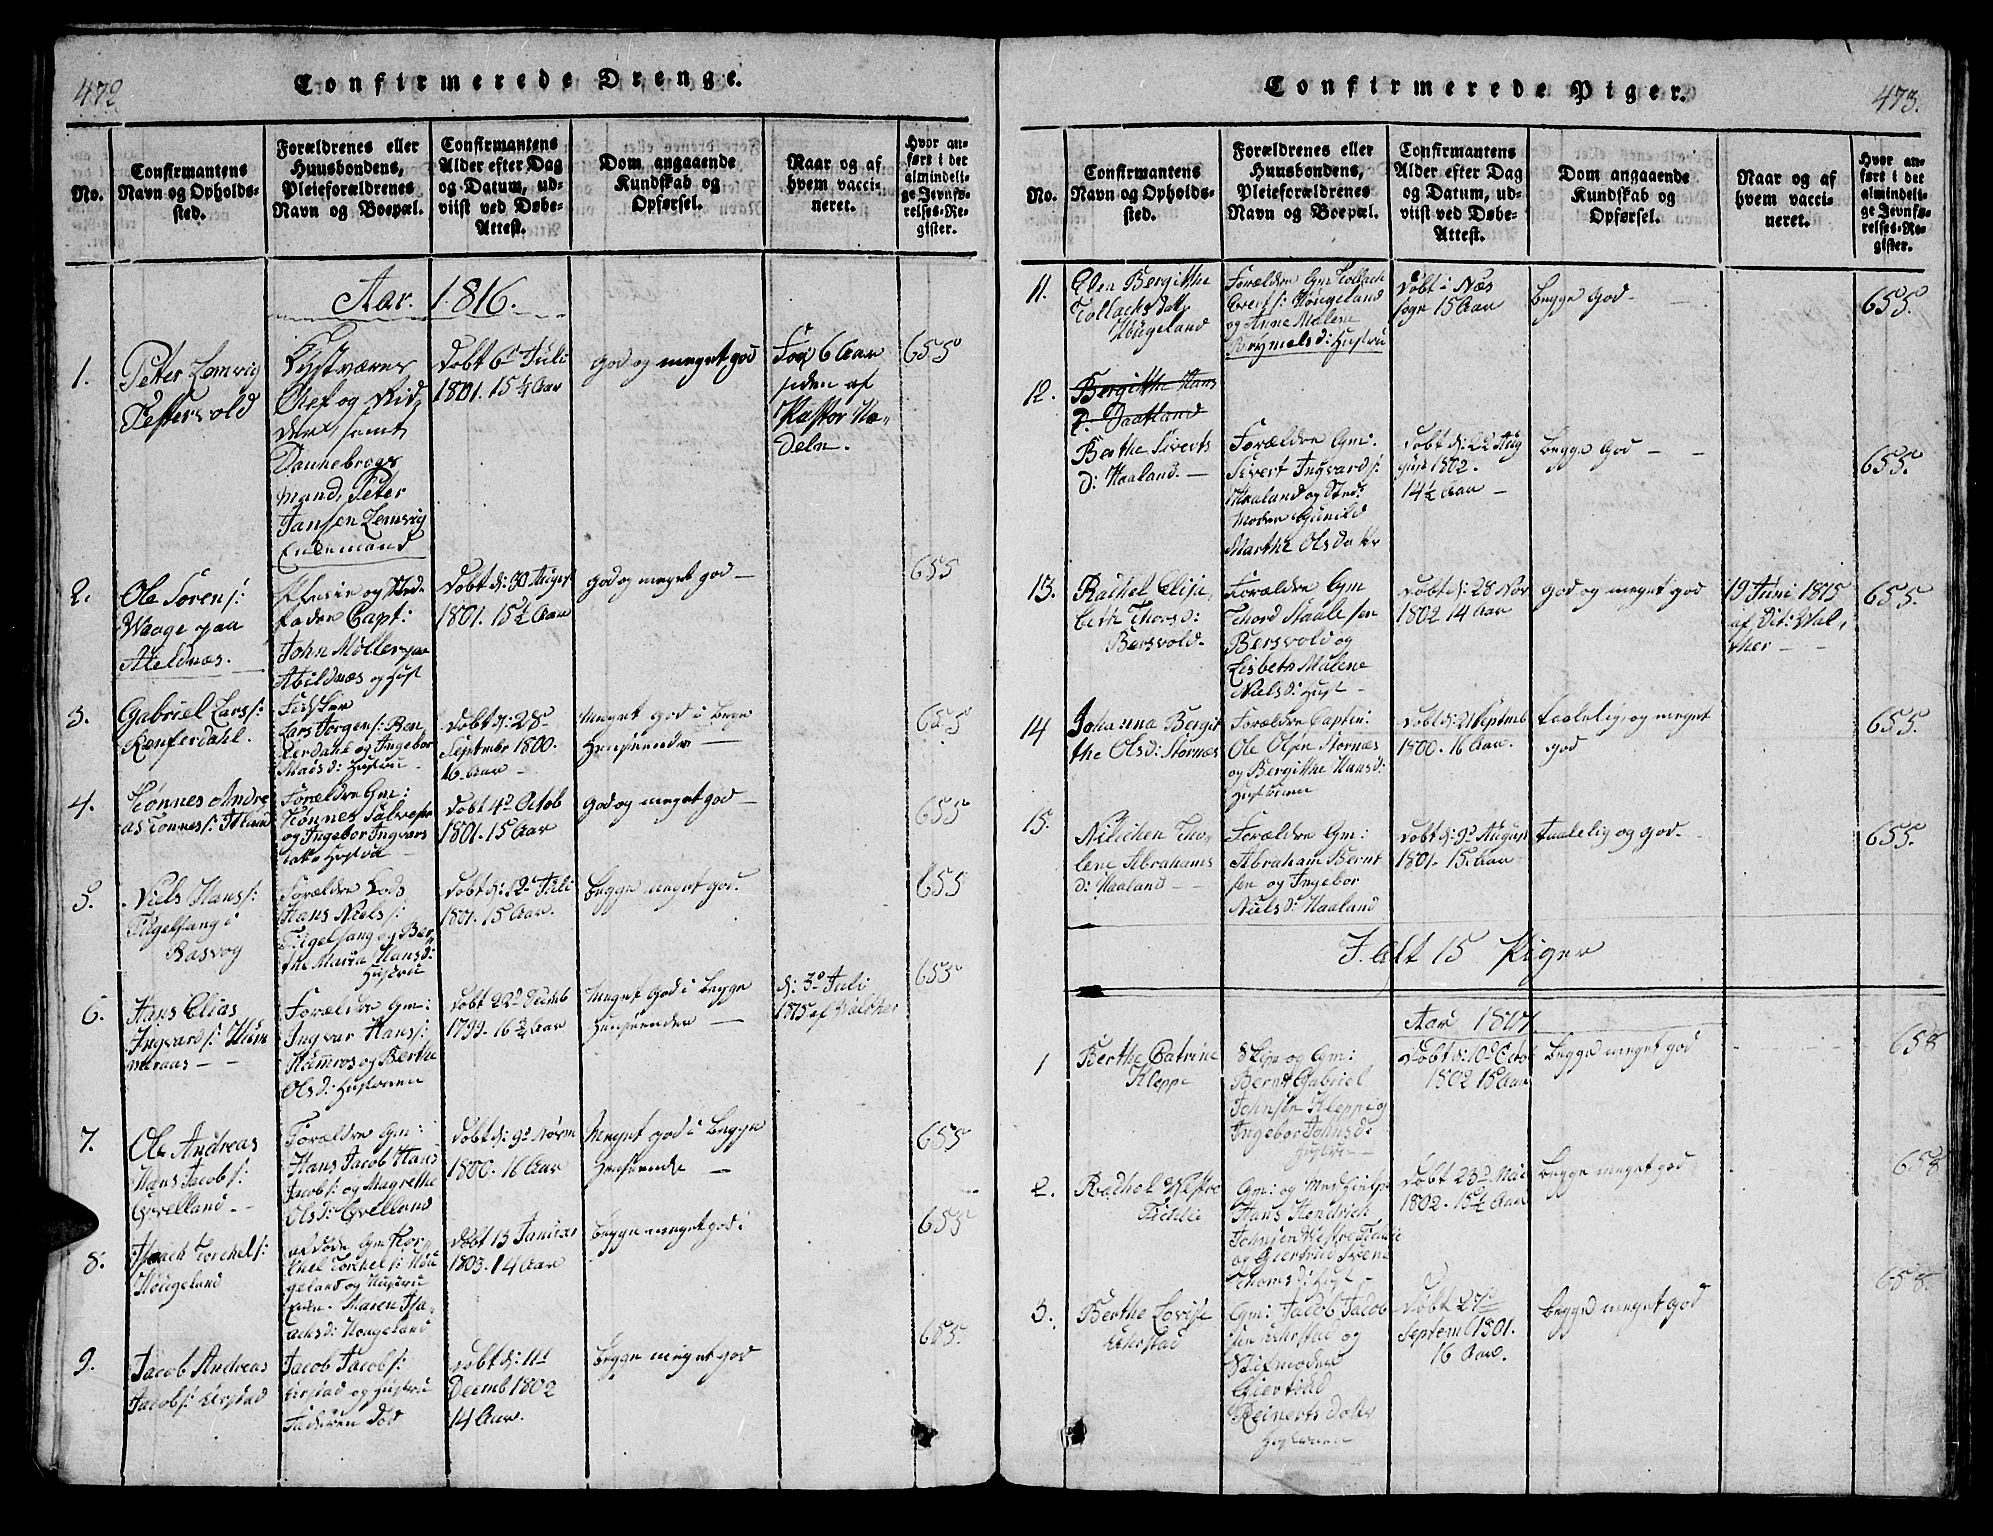 472.
Confirmerede Drenge.
No.
Confirmantens
Navn og Opholds-
sted.
Forældrenes eller
Huusbondens,
Pleieforældrenes
Navn og Boepæl.
Confirmantens
Alder efter Dag
og Datum, ud-
viist ved Døbe-
Attest.
Dom angaaende
Kundskab og
Opførsel.
Naar og af
hvem vacci-
neret.
Hvor an-
ført i det
almindeli-
ge Jevnfø-
relses-Re-
gister.
Aar. 1816.
1.
Peter Lemvig
Pettersvold
Olef og Rid-
der, samt
Dannebrogs
mand, Peter
Jansen Lemvig
Enkemand
Døbt 6te Juli
1801. 15¼ Aar
god og meget god
For 6 Aar
siden af
655
2.
Ole Sørens:
Waage paa
John Møller paa
Abildnæs og Hust
Døbt d: 30 August
1801. 15¼ Aar
god og meget god
655
3.
Gabriel Lars:
Fister
Lars Jørgens:
og Ingebor
Hustru
Døbt d: 28
Septembr 1800.
16 Aar
Meget god i begge
Henseende
655
4.
Tønnes Andre
as Tønnes:
Forældre Gm:
Tønnes
og Ingebor Ingvars
Hustru
Døbt 4d Octob
1801. 15 Aar
god og meget god
655
5.
Niels Hans:
Fugelsang i
Rasvog
Forældre Lods
Hans Niels:
Fugelsang og Ber-
the Maria Hansd:
Hustru
Døbt d: 12 Juli
1801. 15 Aar.
begge meget god.
655
6.
Hans Elias
Ingvards: Hum
meraas
Forældre Gm:
Ingvar Hans:
og Berthe
Olsd: Hustruen
Døbt 22d Decemb
1799. 16¾ Aar
Meget god i begge
Henseender
d: 3d Juli
1815 af Walther
655
7.
Ole Andreas
Hans Jacob:
Qvelland
Forældre Gm:
Hans Jacob Hans
Jacobs: og Magrethe
Olsd: Qvelland
Døbt d: 9d Novm
1800. 16 Aar
Meget god i begge
Henseende
655
8.
Isach Torchels:
Hougeland
afdøde Gm Tor-
chel Torchels: Hou
geland og Hustru
Enke. Maren Isa-
achsd: Hougeland
Døbt 13 Januar
1803. 14 Aar
begge meget god i
655
9.
Jacob Andreas
Jacobs: Eirstad
Jacob Jacobs:
Eirstad og Hustru
Døbt d: 11d
Decemb 1802
14 Aar.
begge meget god
655.
Confirmerede Piger.
473.
No.
Confirmantens
Navn og Opholds-
sted.
Forældrenes eller
Huusbondens,
Pleieforældrenes
Navn og Boepæl.
Confirmantens
Alder efter Dag
og Datum, ud-
viist ved Døbe-
Attest.
Dom angaaende
Kundskab og
Opførsel.
Naar og af
hvem vacci-
neret.
Hvor an-
ført i det
almindeli-
ge Jevnfø-
relses-Re-
gister.
11.
Elen Bergitthe
Tollachsdatt
Hougeland
Forældre Gm Tollach
Hougeland
og Anne Malene
Brynelsd: Hustru
Døbt i Næs
sogn 15 Aar
begge God
655.
12.
Bergitthe Hans
Berthe Siverts
D: Haaland.
Forældre Gm:
Sivert Ingvards:
Haaland og Sted:
moder Gunild
Marthe Olsdatter
Døbt d: 22 Aug
1802.
14½ Aar
begge God
655.
13.
Rachel Elisa-
beth Thorsd:
Bersvold
Forældre Gm
Thord Staalesen
Bersvold og
Lisbeth Malene
Nielsd: Hust
Døbt d: 28 Nov
1802 14 Aar
god og meget god
19 Juni 1815
af Dit: Wal-
ther
655.
14
Johanna Bergit
the Olsd: Stornæs
Forældre Captin:
Ole Olsen Stornæs
og Bergitthe Hansd:
Hustruen
Døbt d: 21 Septemb
1800. 16 Aar.
taalelig og meget
god
655.
15.
Nilichen Tho-
lene Abrahams
d: Haaland
Forældre Gm:
Abraham Bernt
sen og Ingebor
Nielsd: Haaland
Døbt d: 9d August
1801. 15 Aar
taalelig og god
655.
I alt 15 Piger
Aar 1817
1
Berthe Catrine
Kleppe
Skip og Gm:
Bernt Gabriel
Johnsen Kleppe og
Ingebor Johnsd:
Hustru
Døbt d: 10d Octob
1802 15 Aar
begge meget god
658
2.
Rachel Westre
Fiedde
Gm: og
Hans Hendrich
Johnsen Westre Fiedde
og Giertrud Irene
Thomsd: Hust
Døbt 23d Mai
1802. 15½ Aar
begge meget god
658
3.
Berthe Lovise
Eherstad
Gm: Jacob Jacob
sen Eherstad og
Stifmoder
Giertrud
Reinerts Datter
Hustruen
Døbt 27de
Septem 1801.
16 Aar.
begge meget god
658.